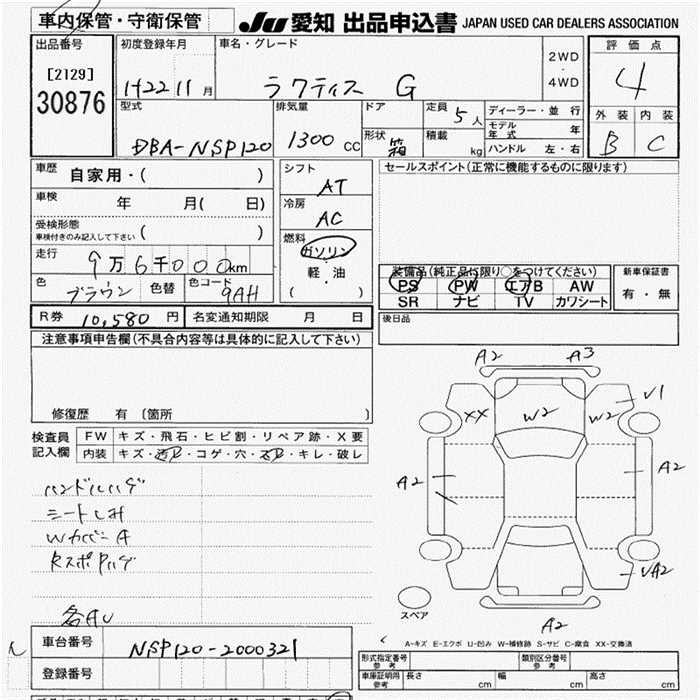 車内保管・守衛保管
JU 愛知 出品申込書 JAPAN USED CAR DEALERS ASSOCIATION
出品番号
[2129]
30876
初度登録年月
H22 11 月
車名・グレード
ラクティス G
2WD
・
4WD
評価点
4
外装 内装
B C
型式
DBA-NSP120
排気量
1300 cc
ドア
形状 箱
定員 5 人
積載 kg
ディーラー・並行
モデル年式 年
ハンドル 左・右
車歴
自家用・( )
車検 年 月( 日)
受検形態
車検付きのみ記入して下さい ( )
走行
9万6千000km
色 ブラウン 色替 色コード 9AH
シフト
AT
冷房
AC
燃料
ガソリン
・
軽・油
( )
セールスポイント(正常に機能するものに限ります)
装備品(純正品に限り○をつけてください)
PS PW エアB AW
SR ナビ TV カワシート
新車保証書
有・無
R券 10,580 円 名変通知期限 月 日
後日品
注意事項申告欄(不具合内容等は具体的に記入して下さい)
修復歴 有 [箇所 ]
検査員
記入欄
FW キズ・飛石・ヒビ割・リペア跡・X要
内装 キズ・汚レ・コゲ・穴・スレ・キレ・破レ
ハンドルハゲ
シートしみ
WカバーA
各AU
A2 A3
XX W2 W2 V1
A2 A2
VA2
A2
スペア
A-キズ E-エクボ U-凹み W-補修跡 S-サビ C-腐食 XX-交換済
車台番号 NSP120-2000321
登録番号
形式指定番号
参考
類別区分番号
参考
車庫証明用
参考
長さ cm 幅 cm 高さ cm